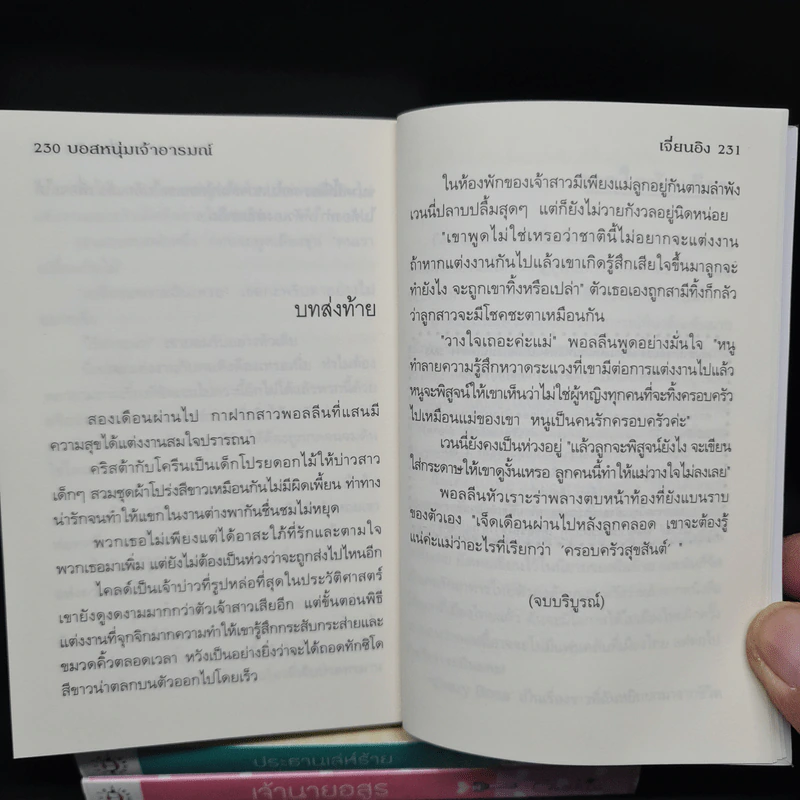 230 บอสหนุ่มเจ้าอารมณ์
บทส่งท้าย
สองเดือนผ่านไป กาฝากสาวพอลลีนที่แสนมี
ความสุขได้แต่งงานสมใจปรารถนา
คริสต้ากับโครีนเป็นเด็กโปรยดอกไม้ให้บ่าวสาว
เด็กๆ สวมชุดผ้าโปร่งสีขาวเหมือนกันไม่มีผิดเพี้ยน ท่าทาง
น่ารักจนทำให้แขกในงานต่างพากันชื่นชมไม่หยุด
พวกเธอไม่เพียงแต่ได้อาสะใภ้ที่รักและตามใจ
พวกเธอมาเพิ่ม แต่ยังไม่ต้องเป็นห่วงว่าจะถูกส่งไปไหนอีก
ไคลด์เป็นเจ้าบ่าวที่รูปหล่อที่สุดในประวัติศาสตร์
เขายังดูงดงามมากกว่าตัวเจ้าสาวเสียอีก แต่ขั้นตอนพิธี
แต่งงานที่จุกจิกมากความทำให้เขารู้สึกกระสับกระส่ายและ
ขมวดคิ้วตลอดเวลา หวังเป็นอย่างยิ่งว่าจะได้ถอดทักซิโด
สีขาวน่าตลกบนตัวออกไปโดยเร็ว
เจี่ยนอิง 231
ในห้องพักของเจ้าสาวมีเพียงแม่ลูกอยู่กันตามลำพัง
เวนนี่ปลาบปลื้มสุดๆ แต่ก็ยังไม่วายกังวลอยู่นิดหน่อย
"เขาพูดไม่ใช่เหรอว่าชาตินี้ไม่อยากจะแต่งงาน
ถ้าหากแต่งงานกันไปแล้วเขาเกิดรู้สึกเสียใจขึ้นมาลูกจะ
ทำยังไง จะถูกเขาทิ้งหรือเปล่า" ตัวเธอเองถูกสามีทิ้งก็กลัว
ว่าลูกสาวจะมีโชคชะตาเหมือนกัน
"วางใจเถอะค่ะแม่" พอลลีนพูดอย่างมั่นใจ "หนู
ทำลายความรู้สึกหวาดระแวงที่เขามีต่อการแต่งงานไปแล้ว
หนูจะพิสูจน์ให้เขาเห็นว่าไม่ใช่ผู้หญิงทุกคนที่จะทิ้งครอบครัว
ไปเหมือนแม่ของเขา หนูเป็นคนรักครอบครัวค่ะ"
เวนนี่ยังคงเป็นห่วงอยู่ "แล้วลูกจะพิสูจน์ยังไง จะเขียน
ใส่กระดาษให้เขาดูงั้นเหรอ ลูกคนนี้ทำให้แม่วางใจไม่ลงเลย"
พอลลีนหัวเราะร่าพลางตบหน้าท้องที่ยังแบนราบ
ของตัวเอง "เจ็ดเดือนผ่านไปหลังลูกคลอด เขาจะต้องรู้
แน่ค่ะแม่ว่าอะไรที่เรียกว่า 'ครอบครัวสุขสันต์' "
(จบบริบูรณ์)
ประธานเล่ห์ร้าย
เจ้านายอสูร